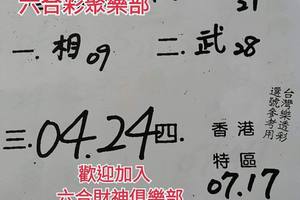 六合彩聚樂部
21
一.相09 二.武28
台灣樂透彩
選號參考用
三.04.24 四.香港
特區
07.17
歡迎加入
六合財神俱樂部